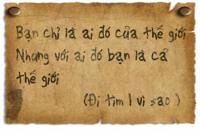 Bạn chỉ là ai đó của thế giới
Nhưng với ai đó bạn là cả
thế giới
(Đi tìm 1 vì sao)